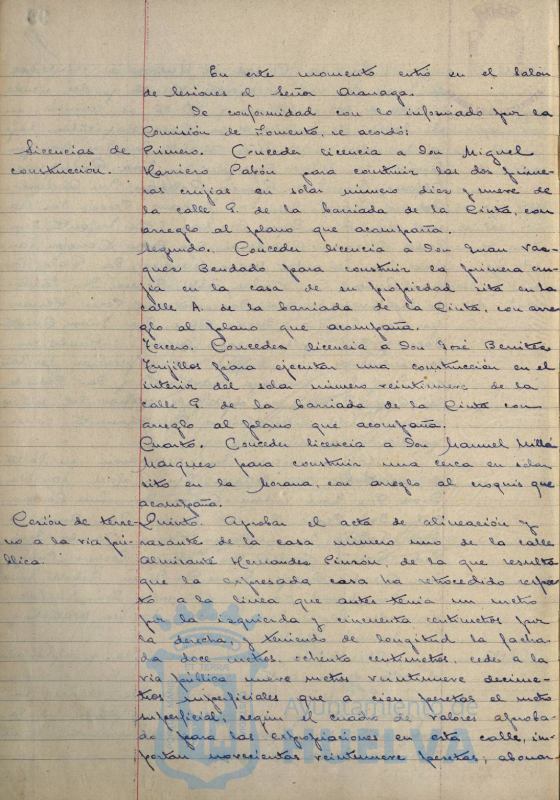 En este momento entró en el Salón
de Sesiones el Señor Aranaga.
De conformidad con lo informado por la
Comisión de Fomento, se acordó:
Licencias de
construcción.
Primero. Conceder licencia a Don Miguel
Harriero Pabón para construir las dos prime-
ras crujias en solar número diez y nueve de
la calle G. de la barriada de la Cinta, con
arreglo al plano que acompaña.
Segundo. Conceder licencia a Don Juan Vaz-
quez Bendado para construir la primera cru-
jia en la casa de su propiedad sita en la
calle A. de la barriada de la Cinta, con arre-
glo al plano que acompaña.
Tercero. Conceder licencia a Don José Benitez
Trujillos para ejecutar una construcción en el
interior del solar número veintinueve de la
calle G. de la barriada de la Cinta con
arreglo al plano que acompaña.
Cuarto. Conceder licencia a Don Manuel Millá
Marquez para construir una cerca en solar
sito en la Morana, con arreglo al croquis que
acompaña.
Cesión de terre-
no a la via pú-
blica.
Quinto. Aprobar el acta de alineación y
rasante de la casa número uno de la calle
Almirante Hernandez Pinzón, de la que resulta
que la expresada casa ha retrocedido respec-
to a la linea que antes tenia un metro
por la izquierda y cincuenta centimetros por
la derecha y teniendo de longitud la facha-
da doce metros, ochenta centimetros, cede a la
via pública nueve metros veintinueve decime-
tros superficiales que a cien pesetas el metro
superficial, según el cuadro de valores aproba-
do para las expropiaciones en esta calle, im-
portan novecientas veintinueve pesetas, abonan-
Ayuntamiento de
HUELVA